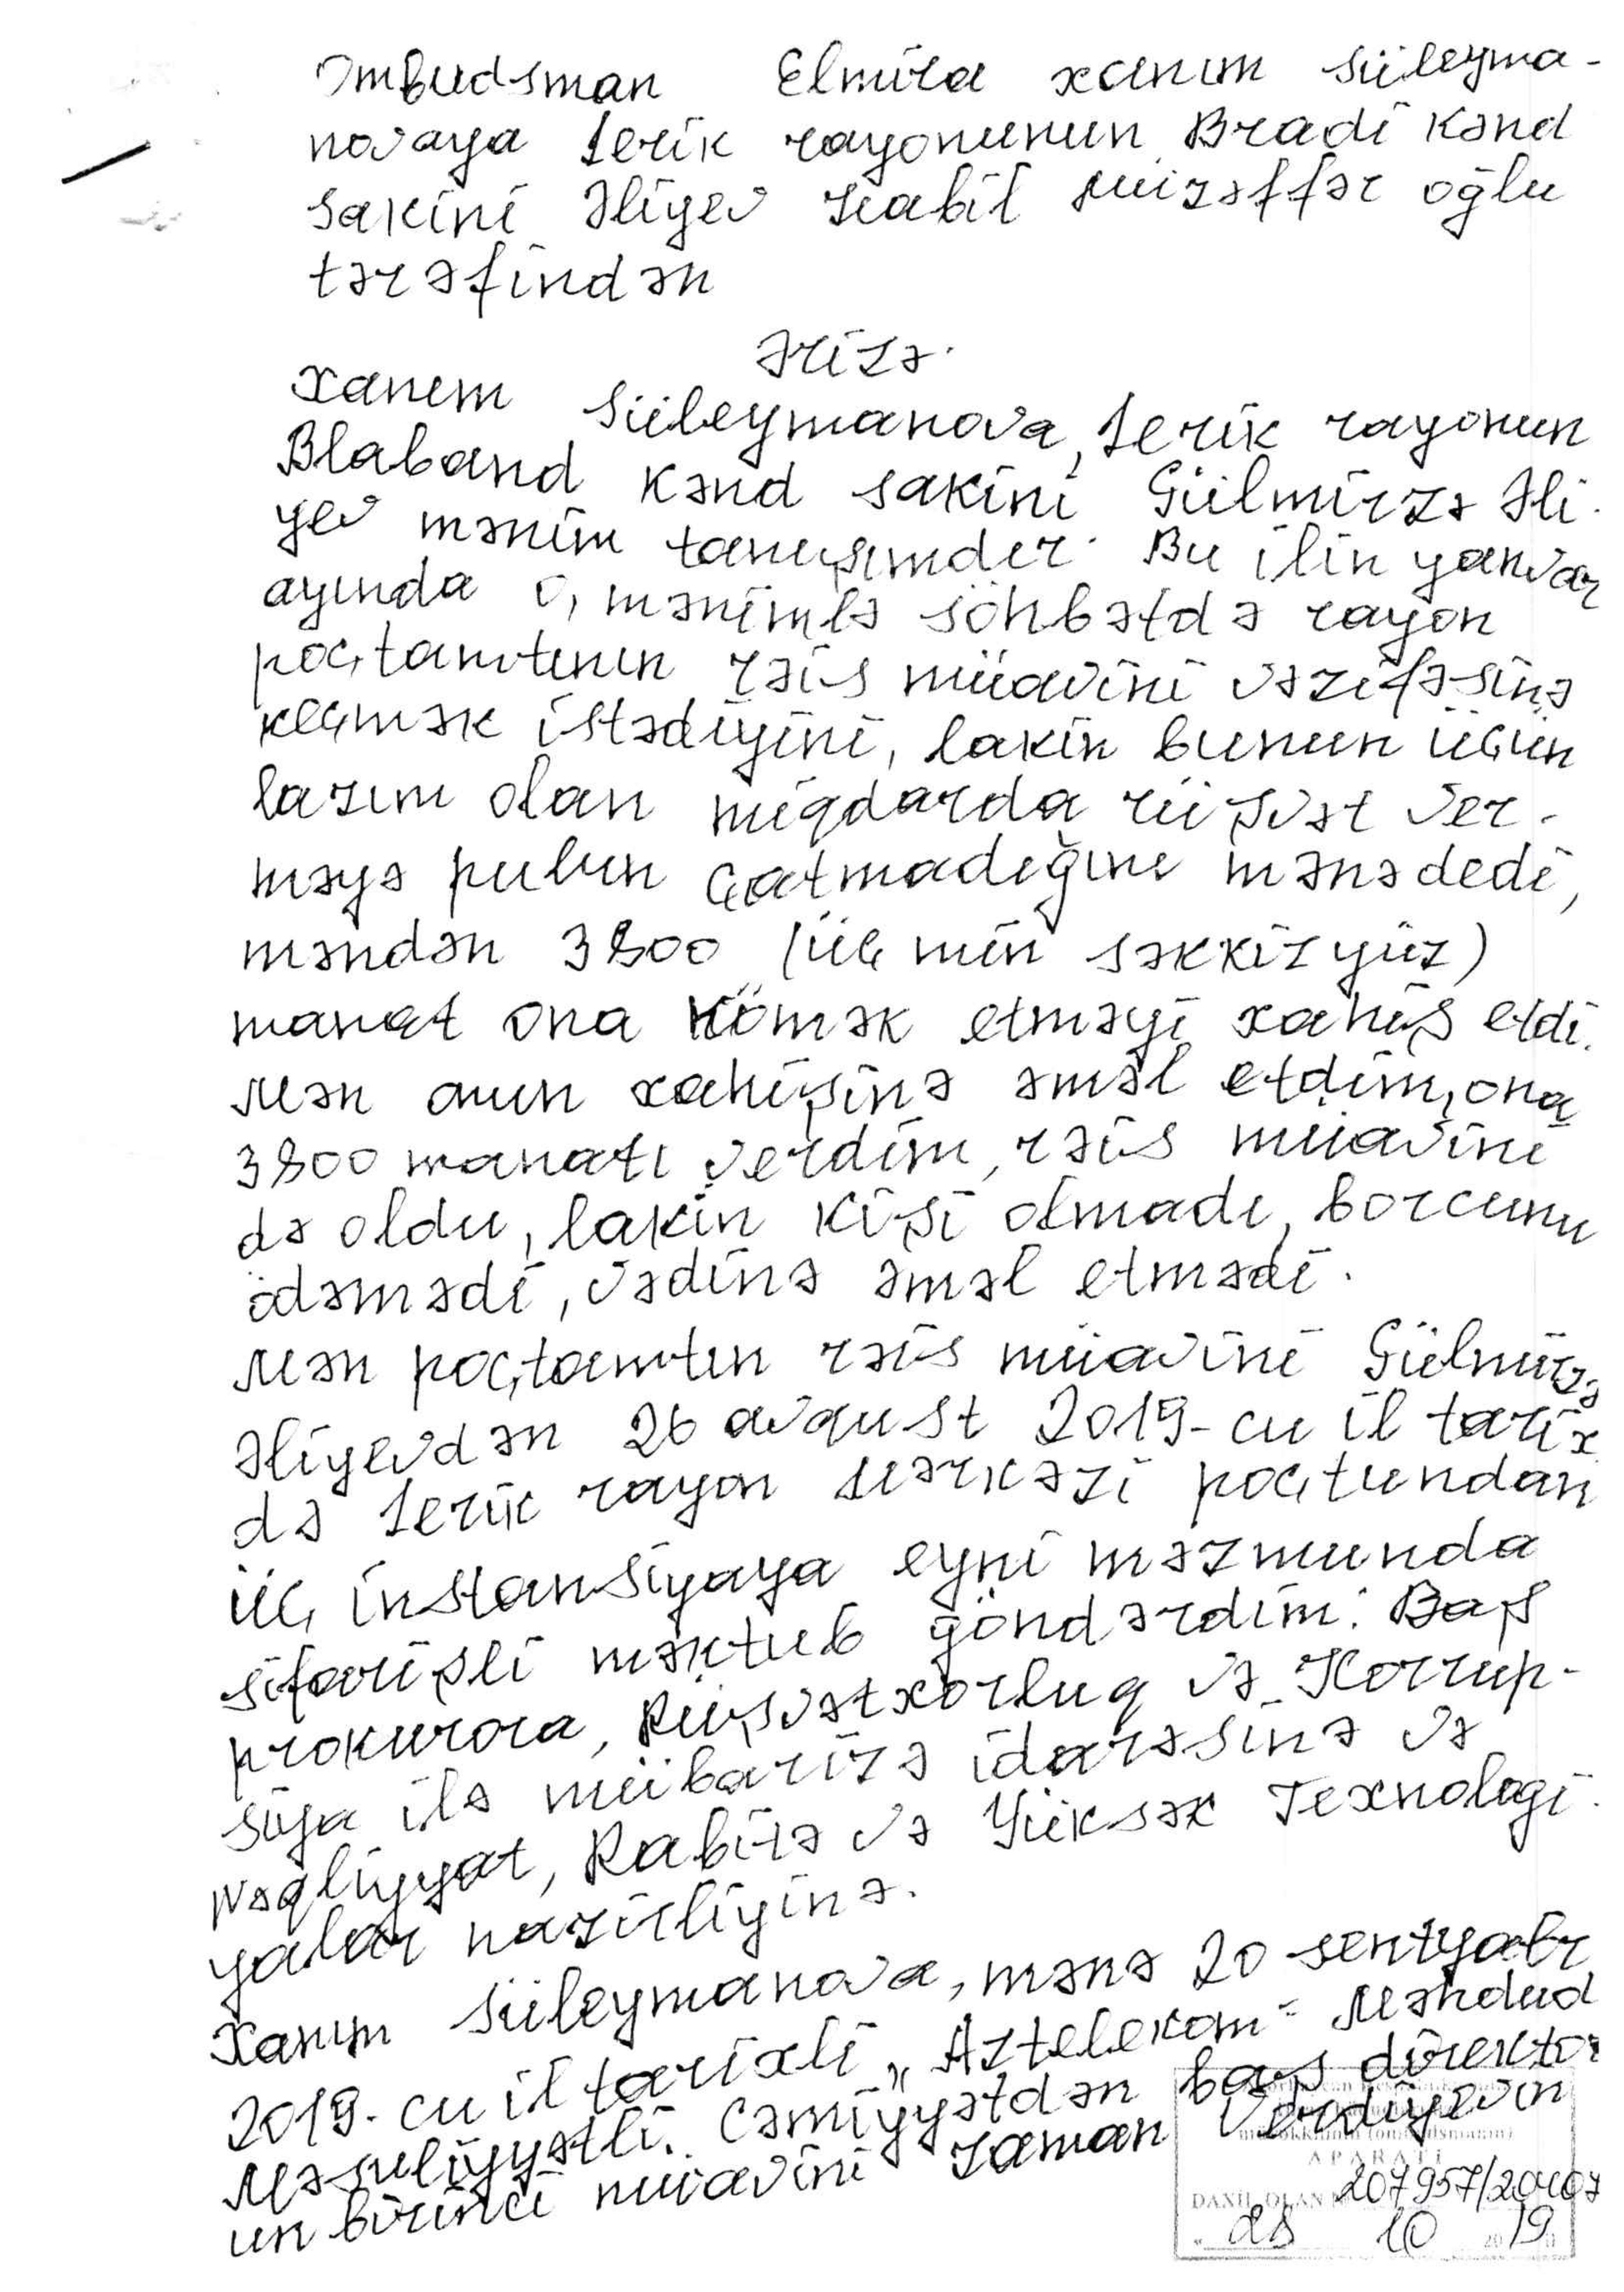 Ombudsman Elmira xanım Süleyma-
novaya Lerik rayonunun Bradi kənd
sakini Əliyev Habil Müzəffər oğlu
tərəfindən
Ərizə.
Xanım Süleymanova, Lerik rayonun
Blaband kənd sakini Gülmirzə Əli-
yev mənim tanışımdır. Bu ilin yanvar
ayında o, mənimlə söhbətdə rayon
poçtamtının rəis müavini vəzifəsinə
keçmək istədiyini, lakin bunun üçün
lazım olan miqdarda rüşvət ver-
məyə pulun çatmadığını mənə dedi,
məndən 3800 (üç min səkkizyüz)
manat ona kömək etməyi xahiş etdi.
Mən onun xahişinə əməl etdim, ona
3800 manatı verdim, rəis müavini
də oldu, lakin kişi olmadı, borcunu
ödəmədi, vədinə əməl etmədi.
Mən poçtamtın rəis müavini Gülmirzə
Əliyevdən 26 avqust 2019-cu il tarix
də Lerik rayon Mərkəzi poçtundan
üç instansiyaya eyni məzmunda
sifarişli məktub göndərdim: Baş
prokurora, Rüşvətxorluq və Korrup-
siya ilə mübarizə idarəsinə və
Nəqliyyat, Rabitə və Yüksək Texnologi-
yalar nazirliyinə.
Xanım Süleymanova, mənə 20 sentyabr
2019-cu il tarixli „Aztelekom" Məhdud
Məsuliyyətli Cəmiyyətdən baş direktor
un birinci müavini Zaman Verdiyevin
APARATI
207957/20407
DAXİL OLAN
28 10 2019